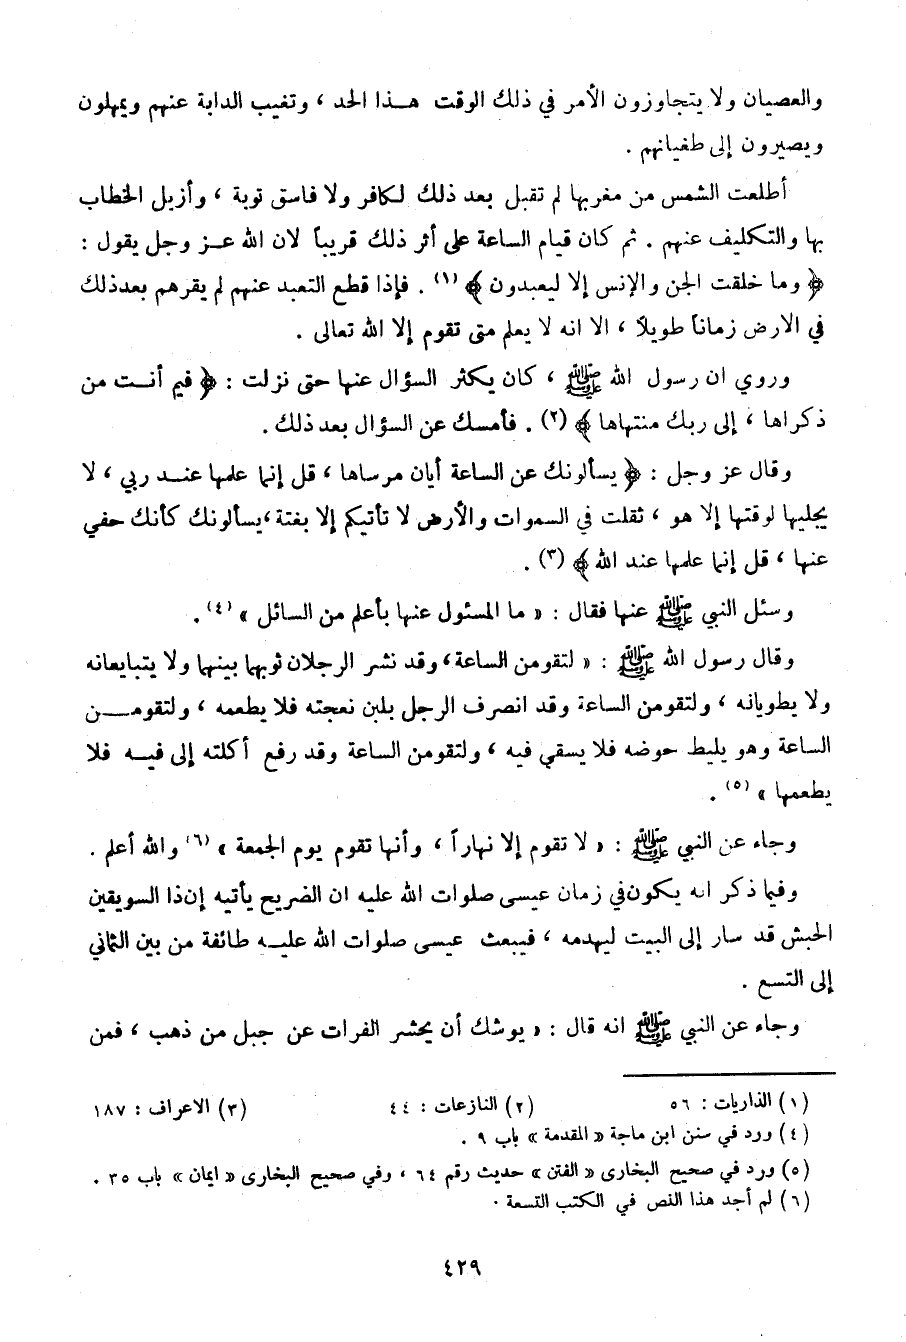 والعصيان ولا يتجاوزون الأمر في ذلك الوقت هـذا الحد ، وتغيب الدابة عنهم ويمهلون
ويصيرون إلى طغيانهم .
أطلعت الشمس من مغربها لم تقبل بعد ذلك لكافر ولا فاسق توبة ، وأزيل الخطاب
بها والتكليف عنهم . ثم كان قيام الساعة على أثر ذلك قريباً لان الله عز وجل يقول :
﴿ وما خلقت الجن والإنس إلا ليعبدون ﴾ (١) . فإذا قطع التعبد عنهم لم يقرهم بعدذلك
في الارض زماناً طويلاً ، الا انه لا يعلم متى تقوم إلا الله تعالى .
وروي ان رسول الله ﷺ ، كان يكثر السؤال عنها حتى نزلت : ﴿ فيم أنت من
ذكراها ، إلى ربك منتهاها ﴾ (٢) . فأمسك عن السؤال بعد ذلك .
وقال عز وجل : ﴿ يسألونك عن الساعة أيان مرساها ، قل إنما علمها عند ربي ، لا
يجليها لوقتها إلا هو ، ثقلت في السموات والأرض لا تأتيكم إلا بغتة ،يسألونك كأنك حفي
عنها ، قل إنما علمها عند الله ﴾ (٣) .
وسئل النبي ﷺ عنها فقال : « ما المسئول عنها بأعلم من السائل » (٤) .
وقال رسول الله ﷺ : « لتقومن الساعة ، وقد نشر الرجلان ثوبهما بينهما ولا يتبايعانه
ولا يطويانه ، ولتقومن الساعة وقد انصرف الرجل بلبن نعجته فلا يطعمه ، ولتقومـــن
الساعة وهو يليط حوضه فلا يسقي فيه ، ولتقومن الساعة وقد رفع أكلته إلى فيـه فلا
يطعمها » (٥) .
وجاء عن النبي ﷺ : « لا تقوم إلا نهاراً ، وأنها تقوم يوم الجمعة » (٦) والله أعلم .
وفيما ذكر انه يكون في زمان عيسى صلوات الله عليه ان الضريح يأتيه إن ذا السويقين
الحبش قد سار إلى البيت ليهدمه ، فيبعث عيسى صلوات الله عليـه طائفة من بين الثماني
إلى التسع .
وجاء عن النبي ﷺ انه قال : « يوشك أن يحشر الفرات عن جبل من ذهب ، فمن
(١) الذاريات : ٥٦ (٢) النازعات : ٤٤ (٣) الاعراف : ١٨٧
(٤) ورد في سنن ابن ماجة « المقدمة » باب ٩ .
(٥) ورد في صحيح البخارى « الفتن » حديث رقم ٦٤ ، وفي صحيح البخارى « ايمان » باب ٣٥ .
(٦) لم أجد هذا النص في الكتب التسعة .
٤٢٩